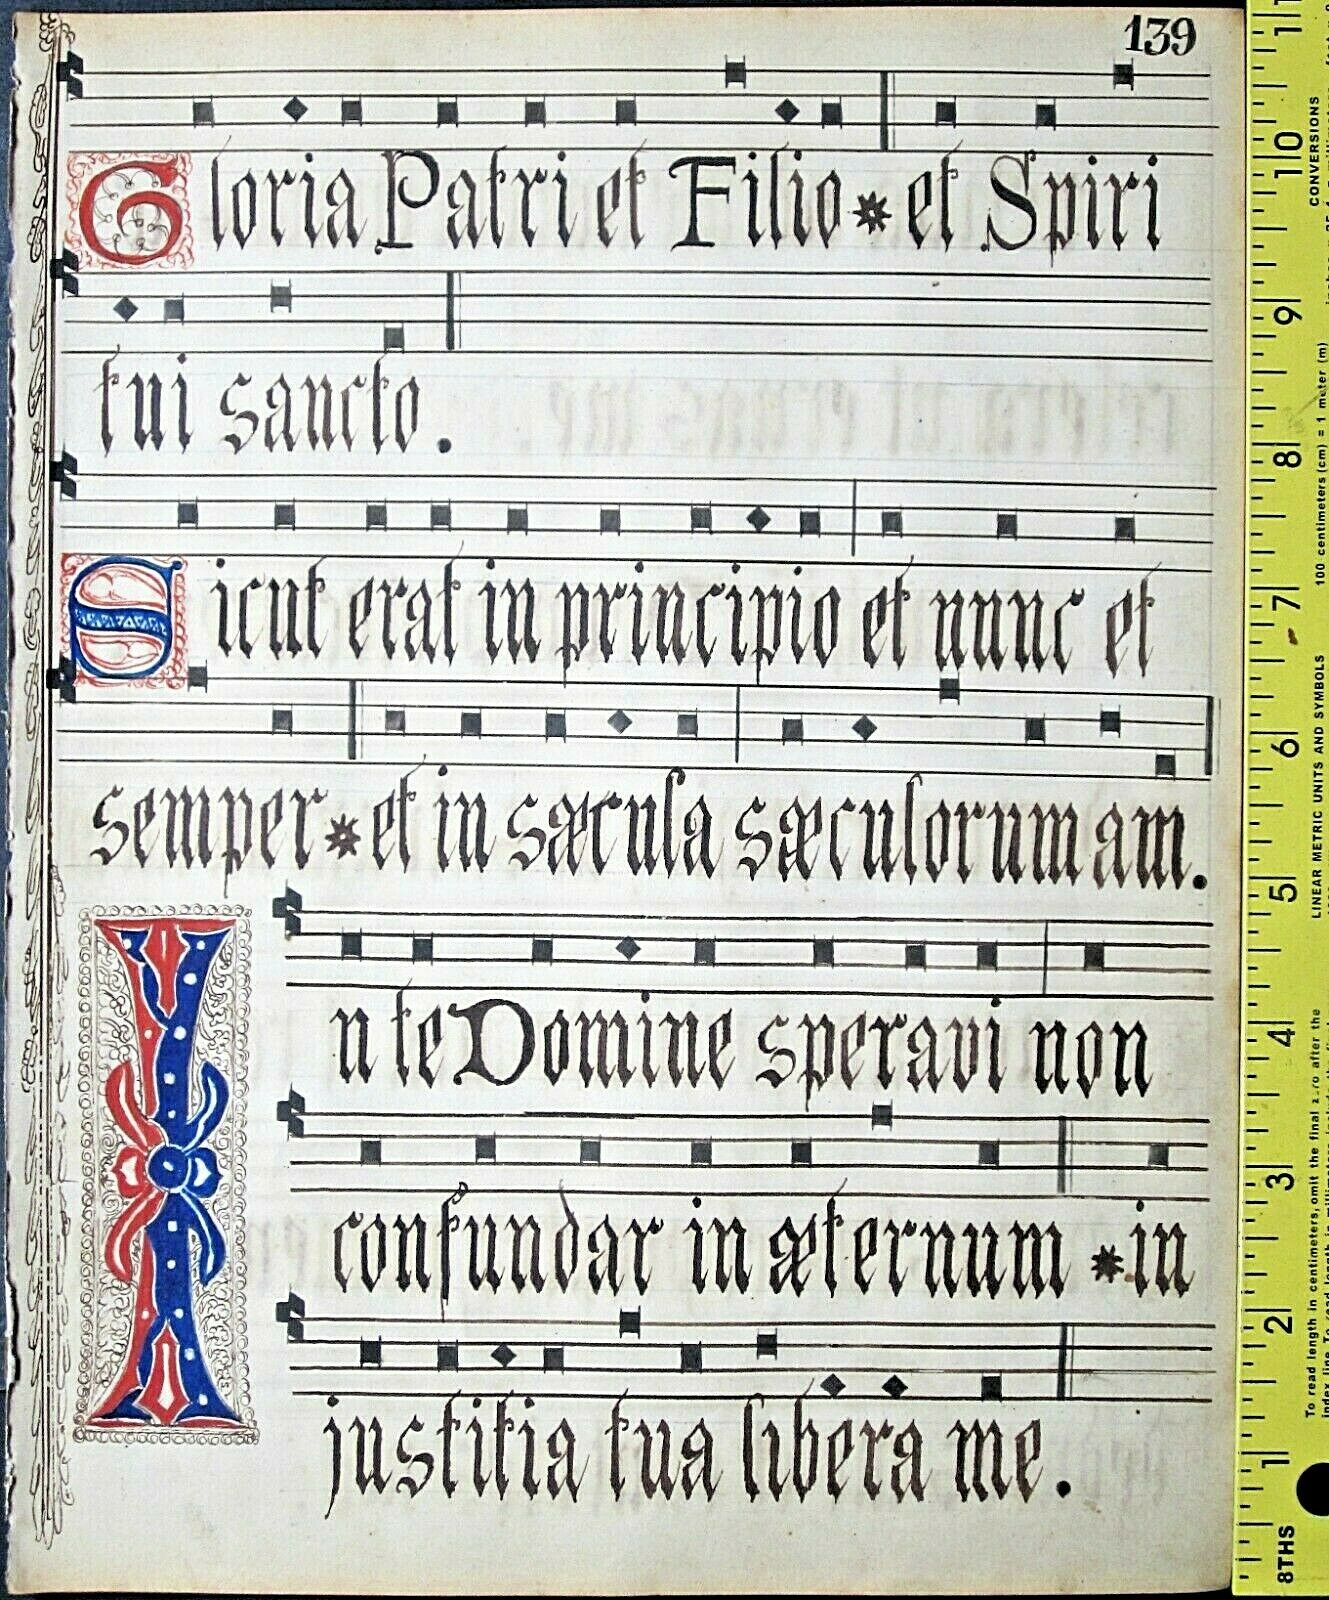 139
Gloria Patri et Filio * et Spiri
tui sancto.
Sicut erat in principio et nunc et
semper * et in sæcula sæculorum am.
In te Domine speravi non
confundar in æternum * in
justitia tua libera me.
11
10
9
8
7
6
5
4
3
2
1
8THS
CONVERSIONS
100 centimeters (cm) = 1 meter (m)
LINEAR METRIC UNITS AND SYMBOLS
To read length in centimeters, omit the final zero after the